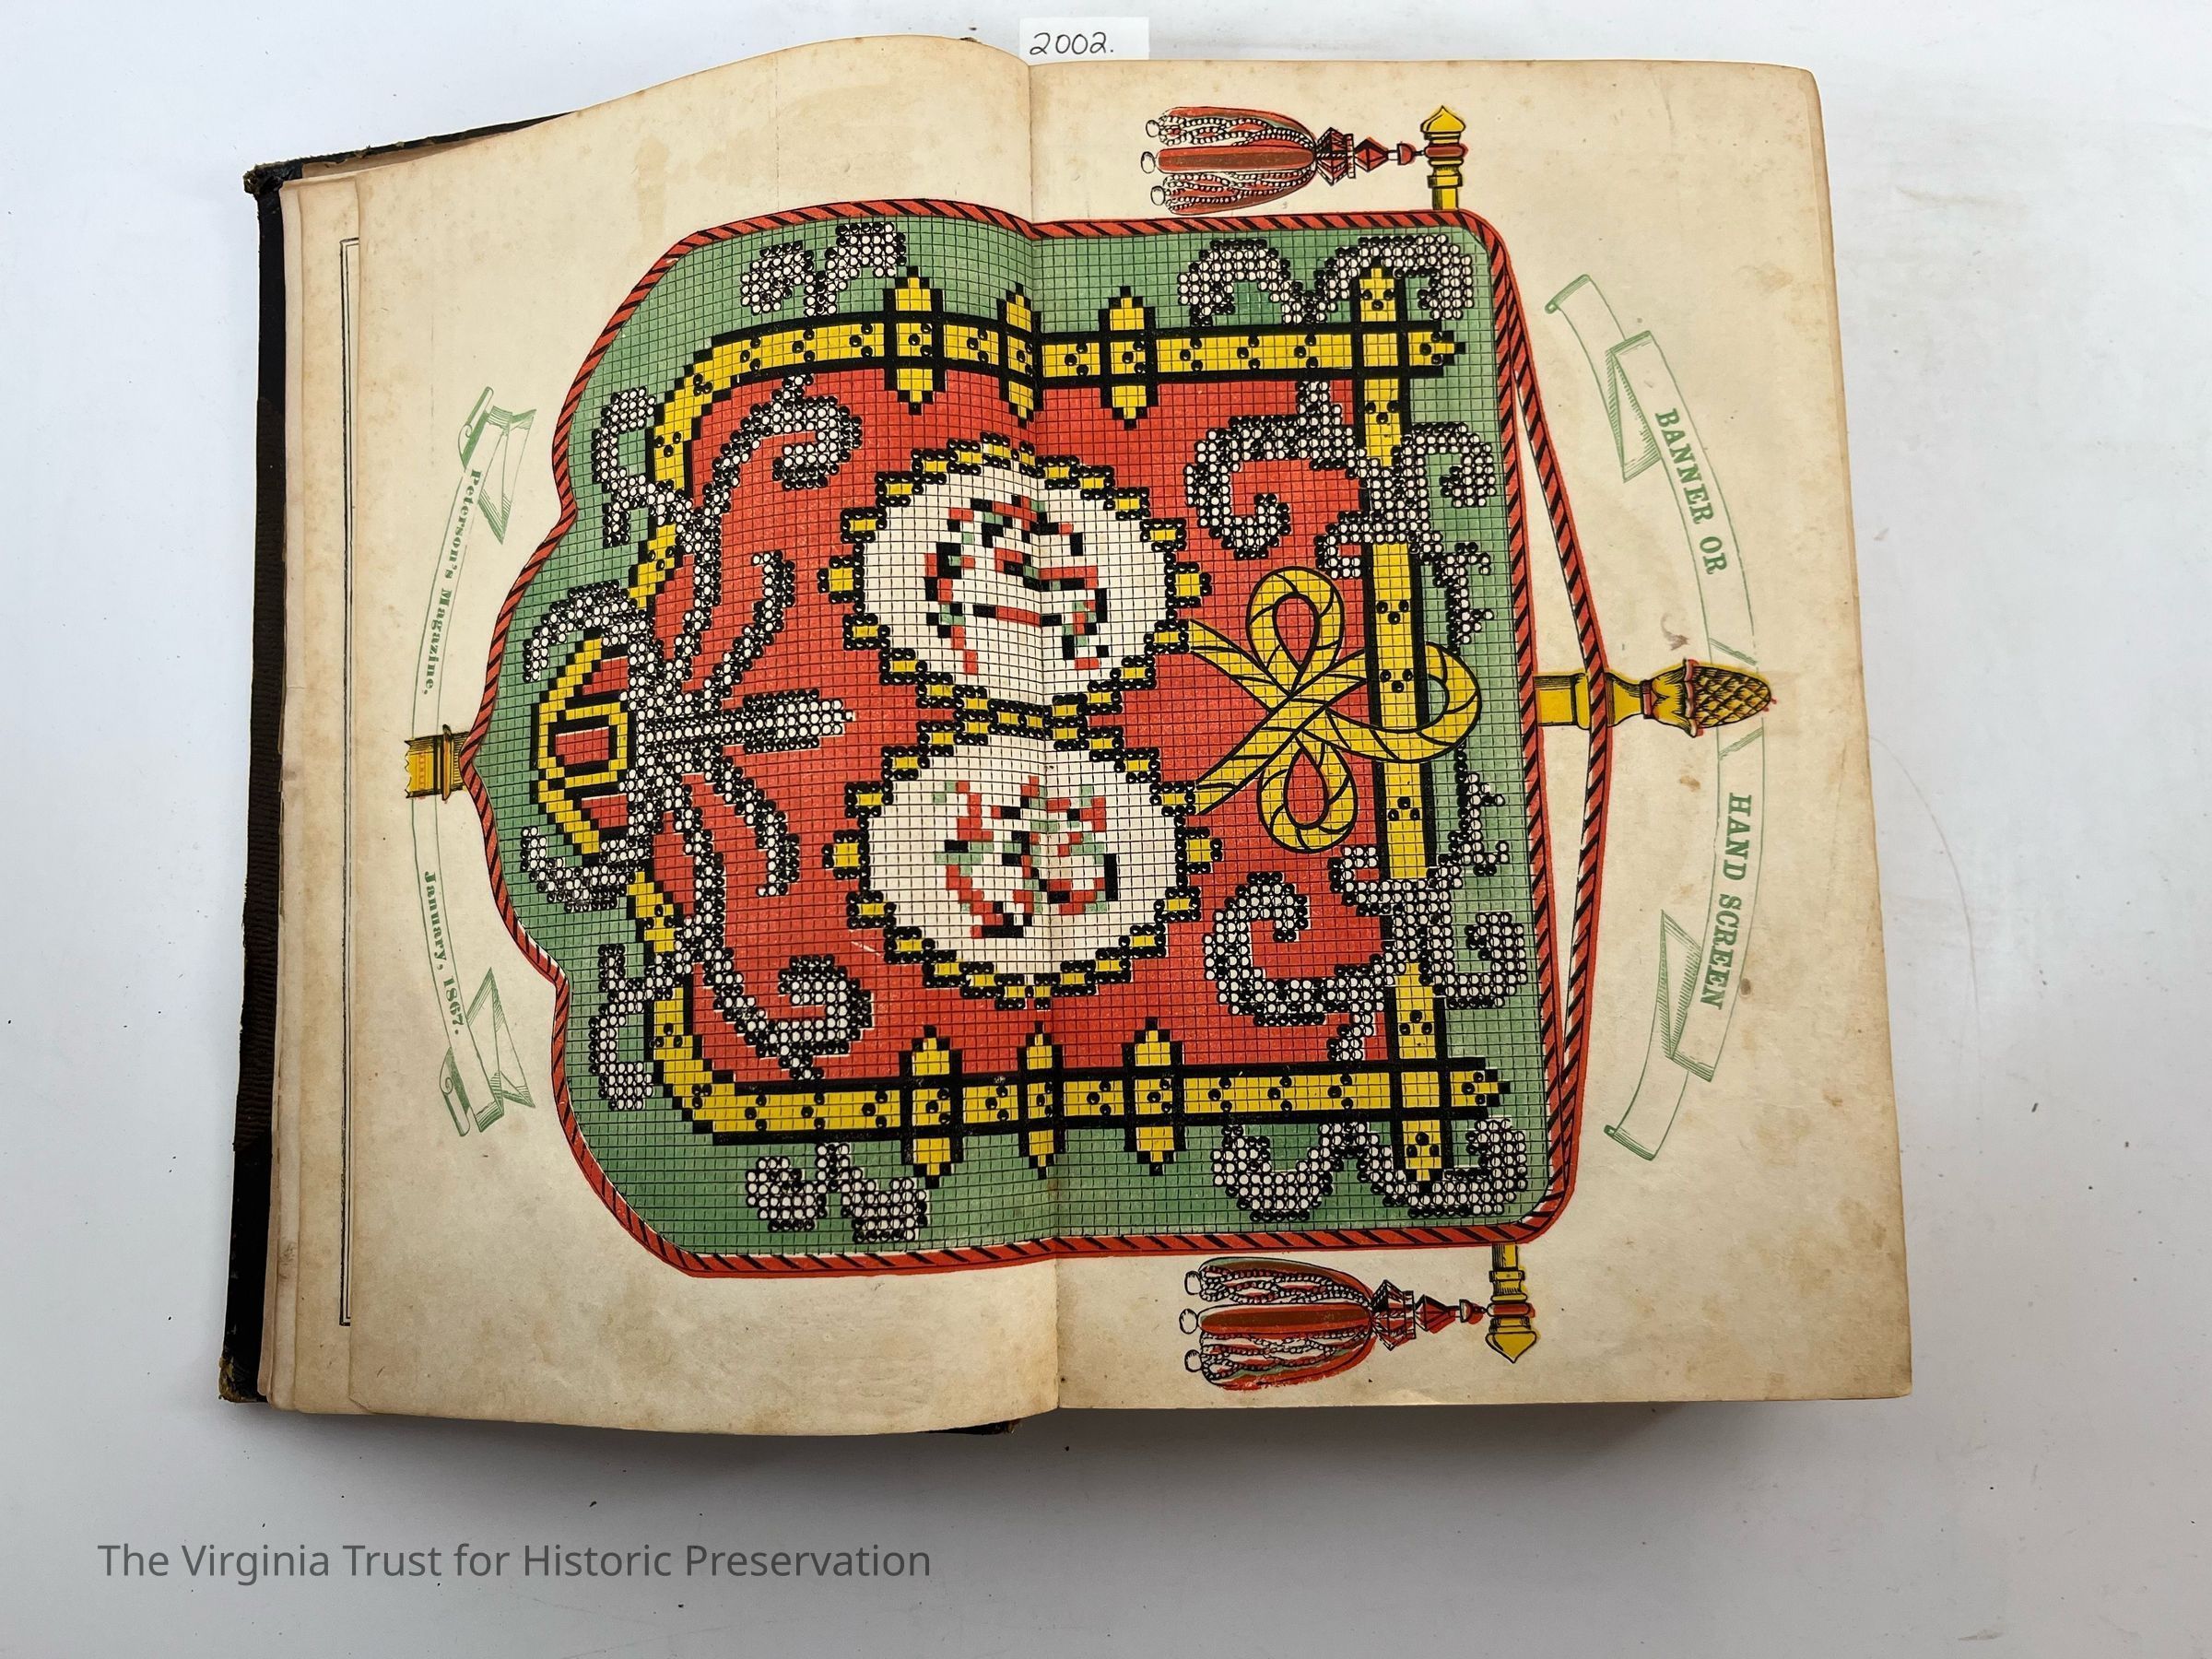 2002.
BANNER OR HAND SCREEN
Peterson's Magazine, January, 1867.
The Virginia Trust for Historic Preservation